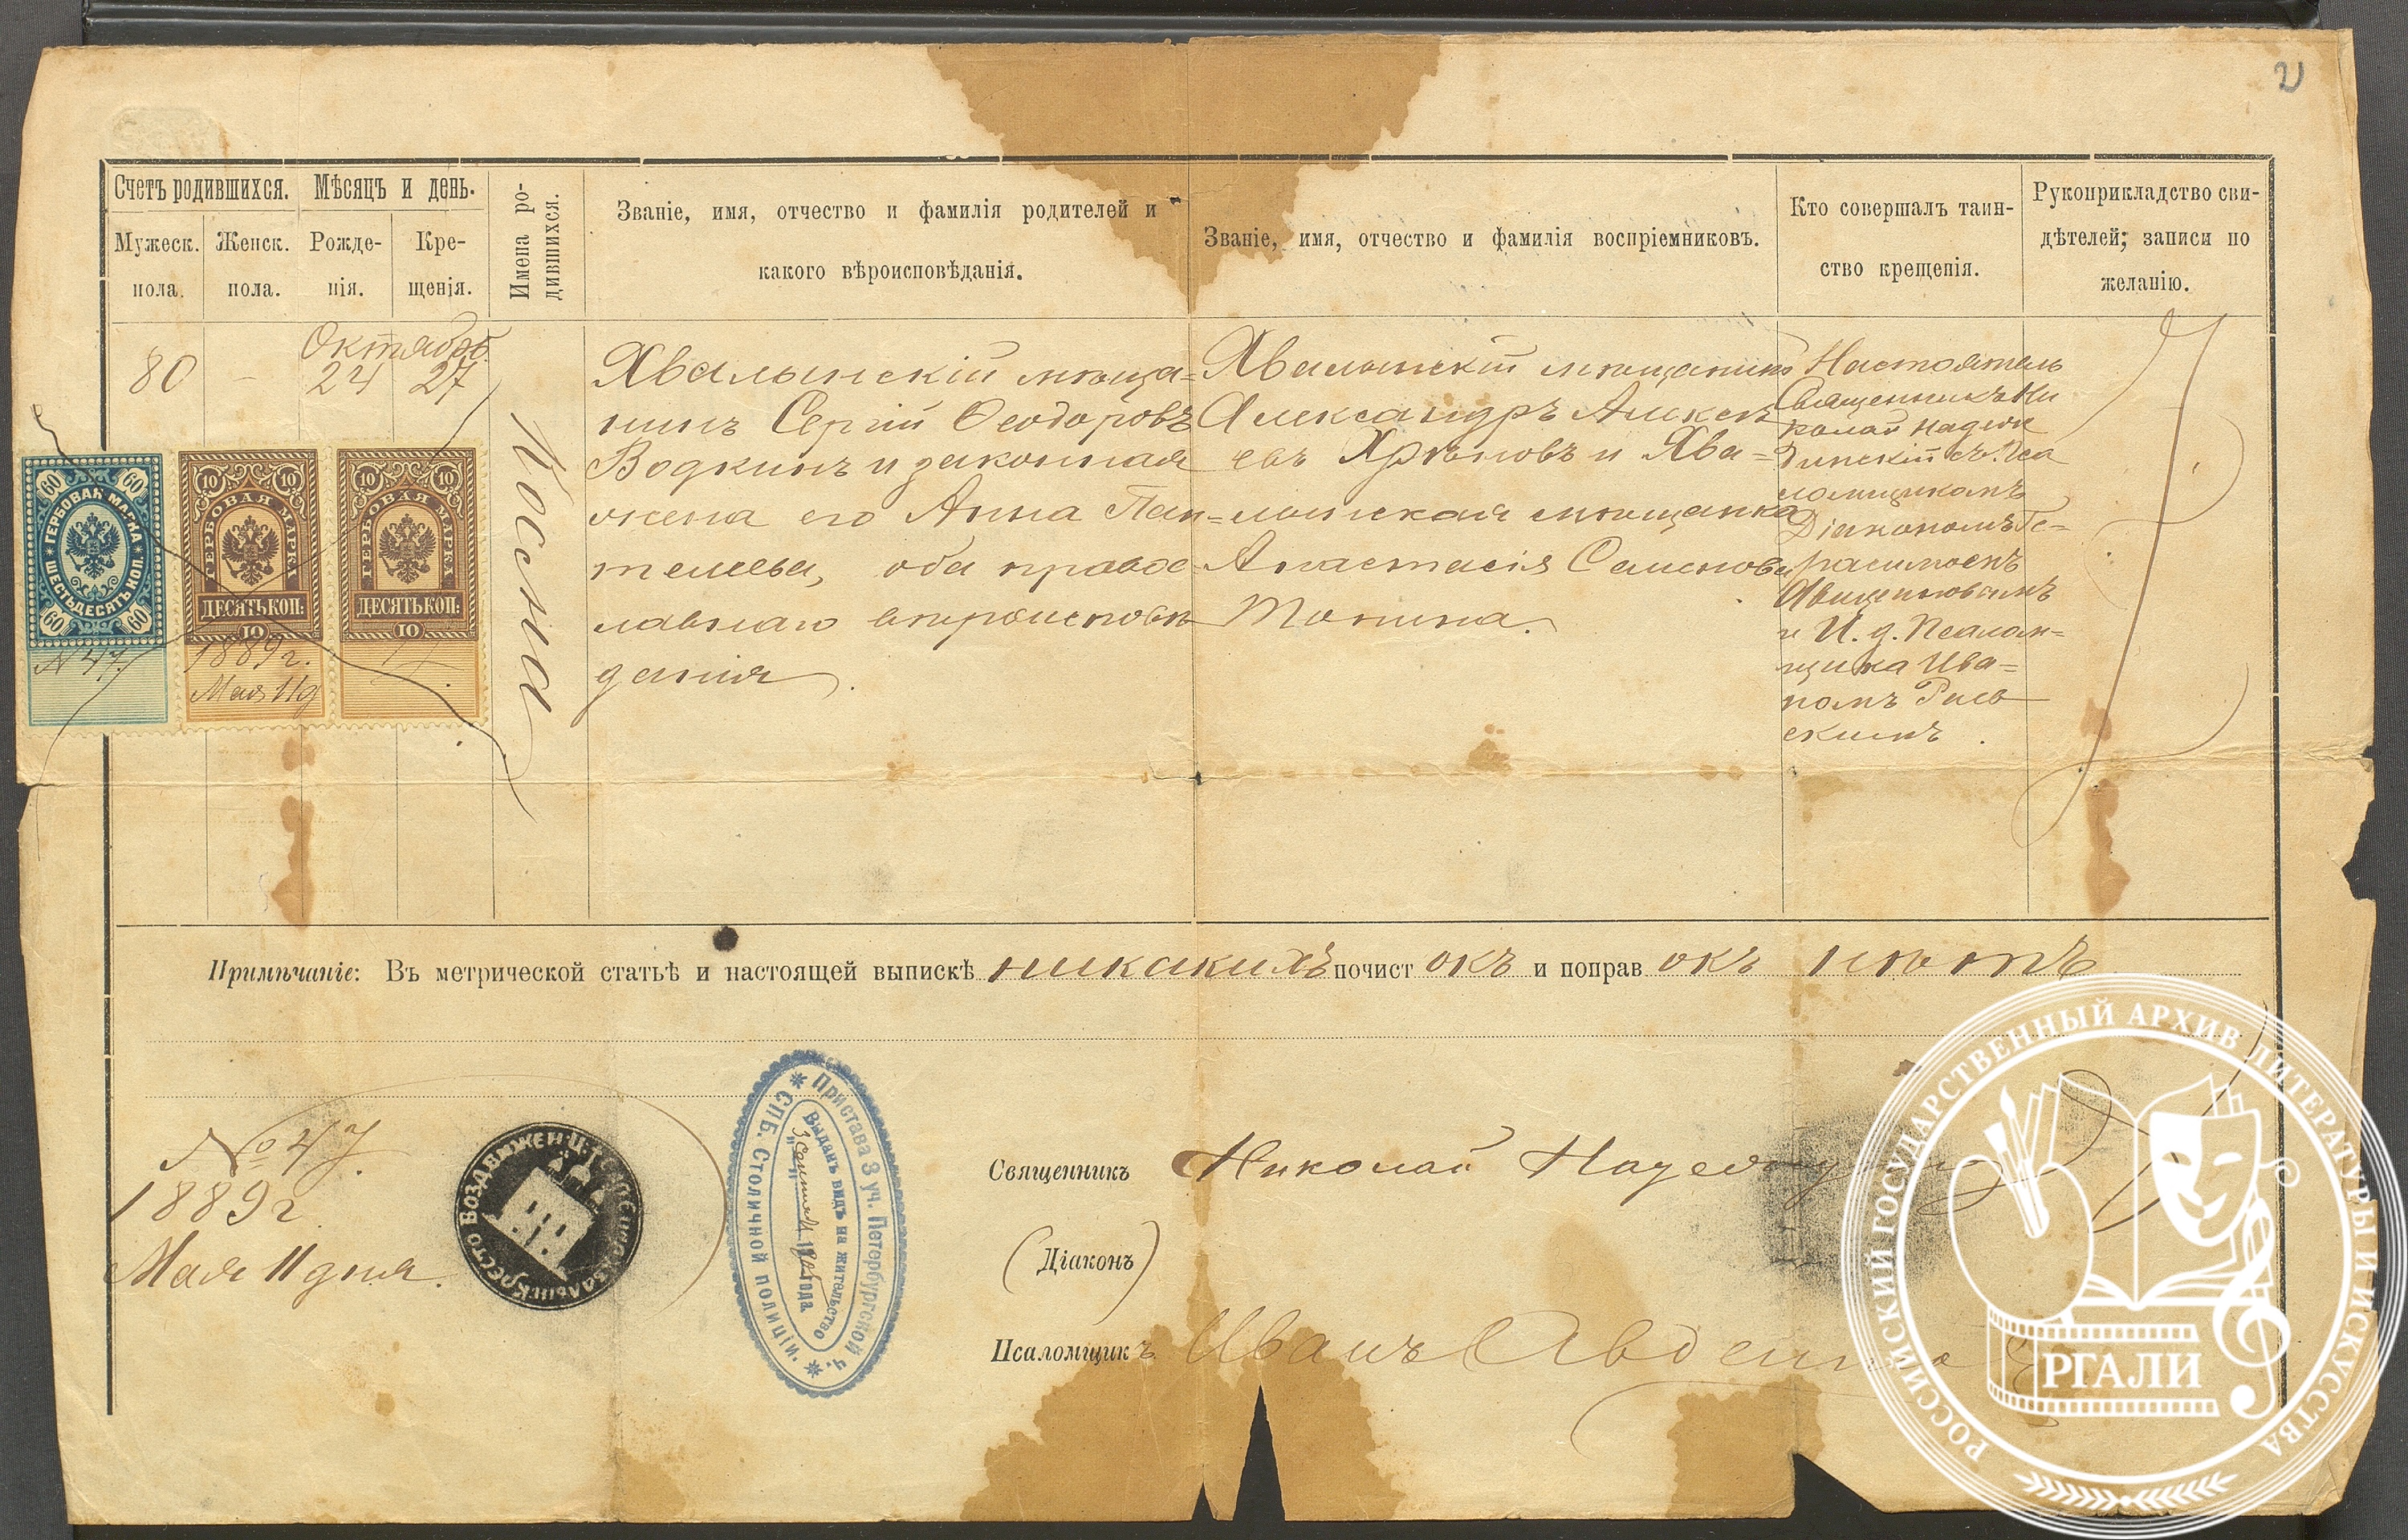 2
Счетъ родившихся.
Мужеск. пола.
Женск. пола.
Мѣсяцъ и день.
Рожде-
нія.
Кре-
щенія.
Имена ро-
дившихся.
Званіе, имя, отчество и фамилія родителей и
какого вѣроисповѣданія.
Званіе, имя, отчество и фамилія воспріемниковъ.
Кто совершалъ таин-
ство крещенія.
Рукоприкладство сви-
дѣтелей; записи по
желанію.
80
-
Октябрь
24 27
Косма
Хвалынскій мѣща=
нинъ Сергій Ѳеодоровъ
Водкинъ и законная
жена его Анна Пан=
телеева, оба правос
лавнаго вѣроисповѣ
данія.
Хвалынскій мѣщанинъ
Александръ Алексѣ
евъ Хрѣновъ и Хва=
лынская мѣщанка
Анастасія Семенова
Тонина.
Настоятель
Священникъ Ни
колай Надеж
динскій съ Пса
ломщикомъ
Діакономъ Ге=
расимомъ
и И. д. Псалом=
щика Ива=
номъ
ГЕРБОВАЯ МАРКА
ШЕСТЬДЕСЯТЪ КОП.
60 60
60 60
N 47.
10 10
ГЕРБОВАЯ МАРКА
ДЕСЯТЬ КОП:
10
1889 г.
Мая 11 д
10 10
ГЕРБОВАЯ МАРКА
ДЕСЯТЬ КОП:
10
Примѣчаніе: Въ метрической статьѣ и настоящей выпискѣ никакихъ почист окъ и поправ окъ нѣтъ
№ 47.
1889 г.
Мая 11 дня.
Пристава 3 уч. Петербургской ч.
СПБ. СТОЛИЧНОЙ ПОЛИЦІИ.
Выданъ видъ на жительство
года
Священникъ Николай
(Діаконъ)
Псаломщикъ Иванъ
РОССИЙСКИЙ ГОСУДАРСТВЕННЫЙ АРХИВ ЛИТЕРАТУРЫ И ИСКУССТВА
РГАЛИ